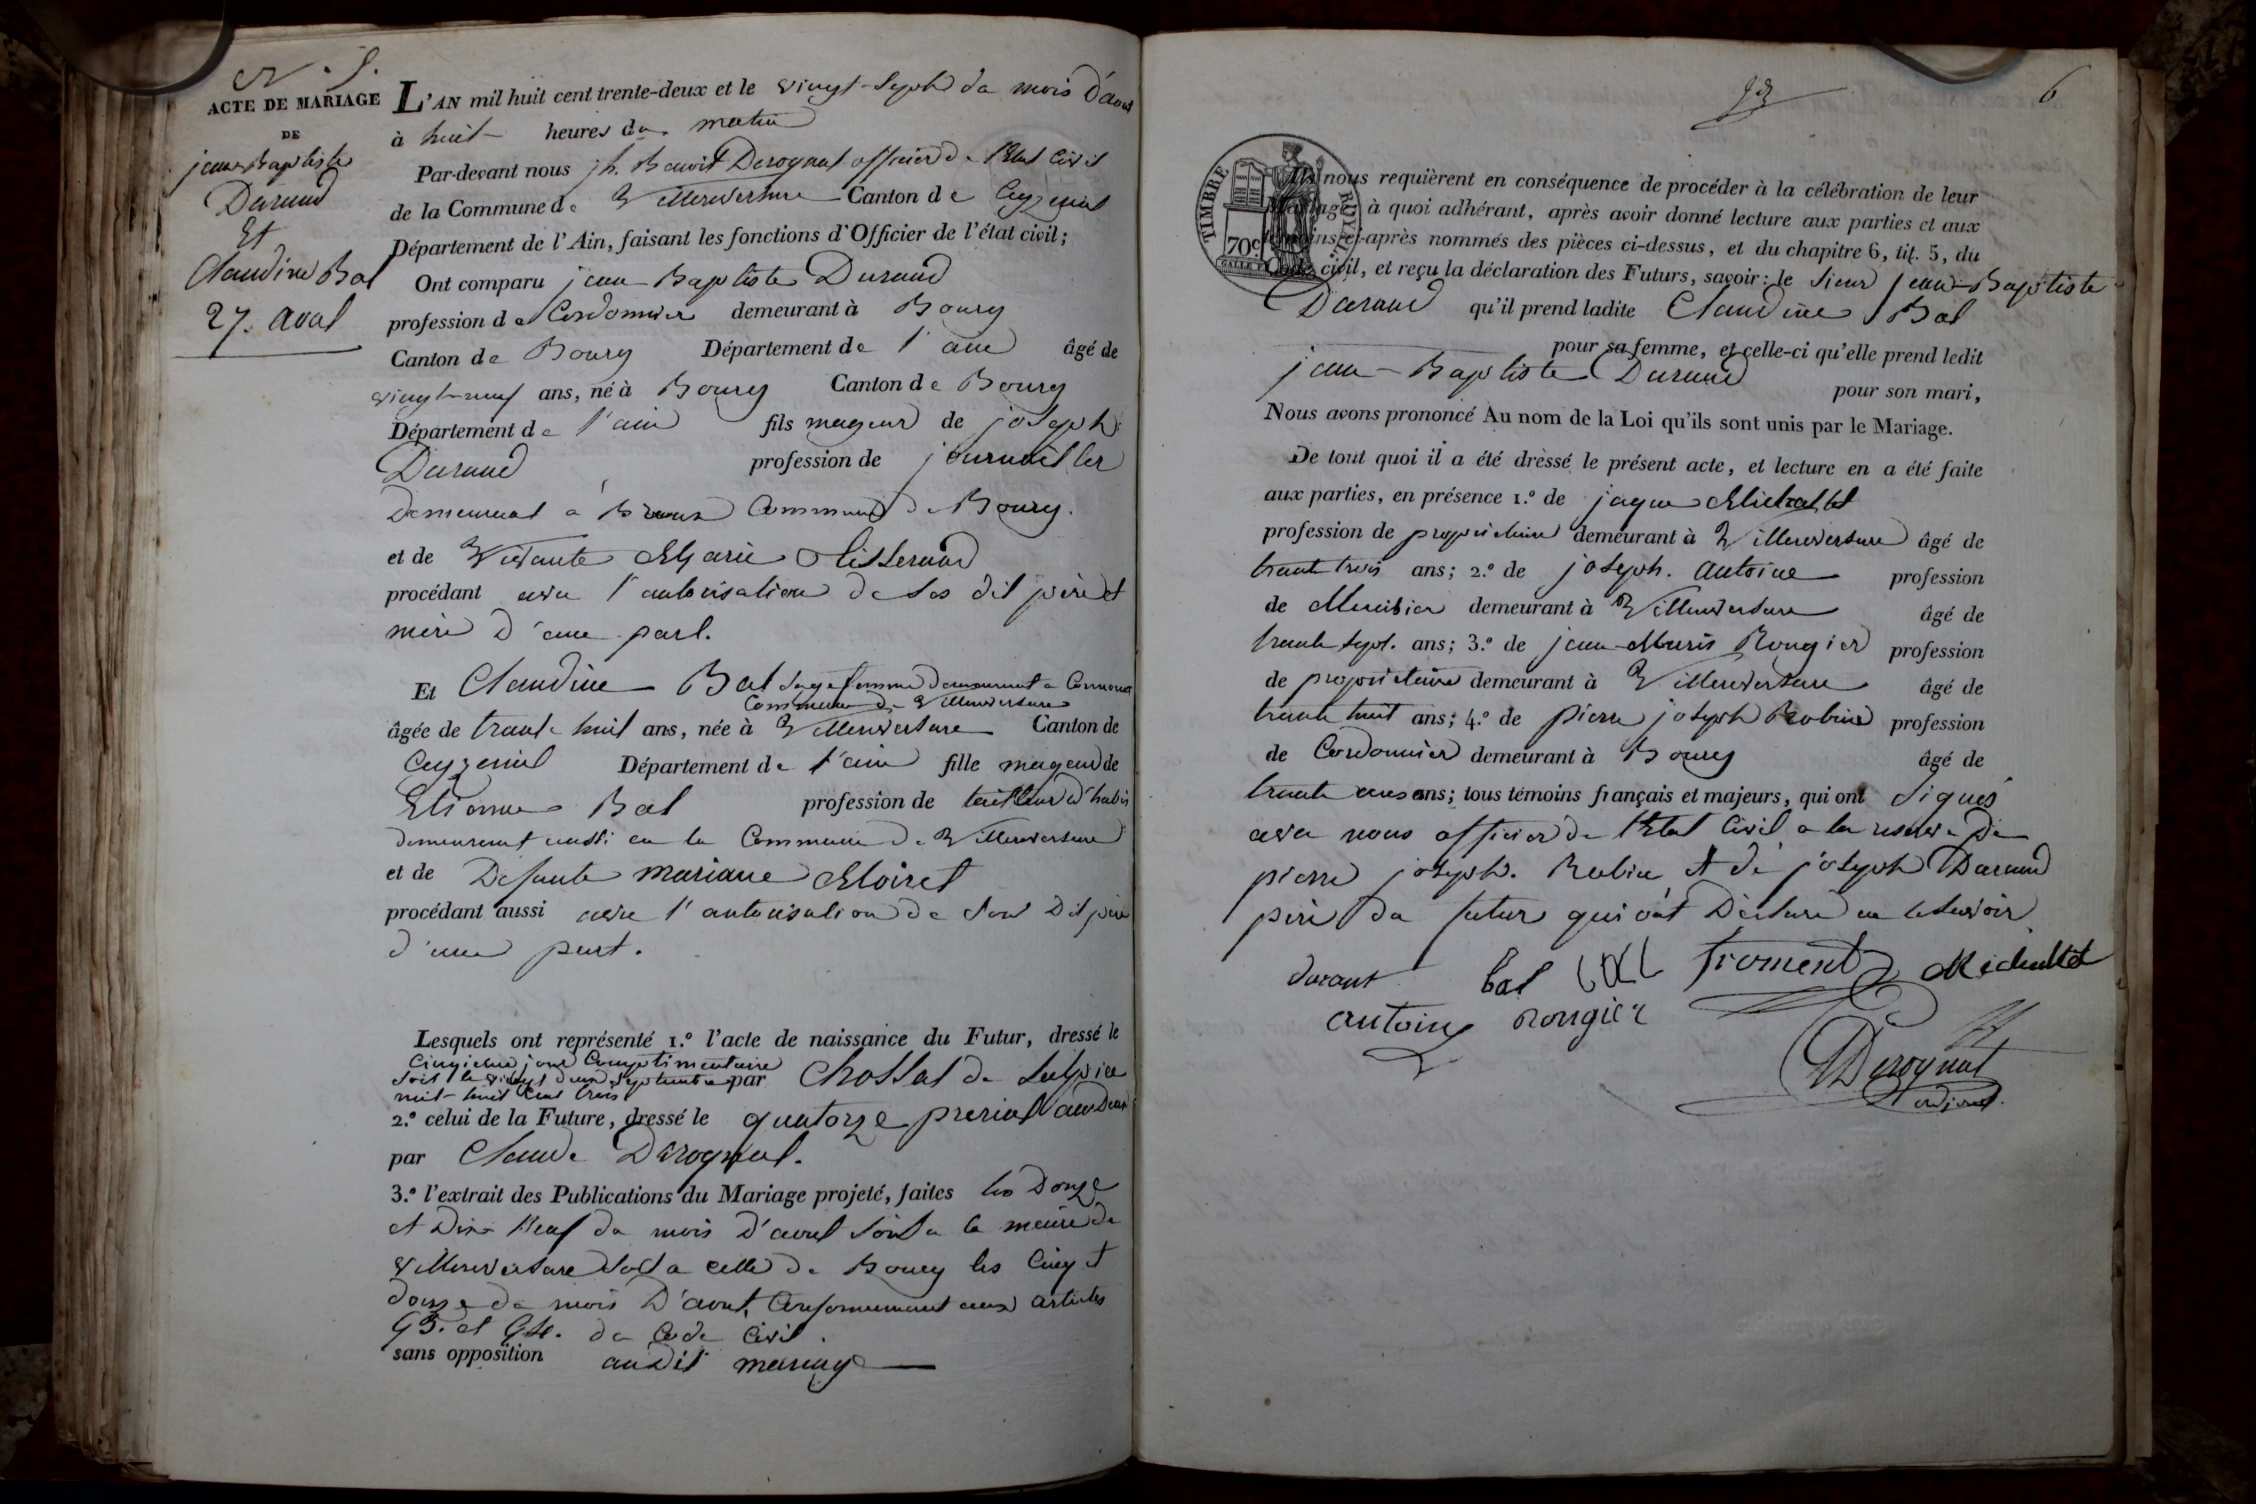 N. 5.
ACTE DE MARIAGE
DE
jean Baptiste
Durand
Et
Claudine Bal
27. aout
L'AN mil huit cent trente-deux et le vingt-Septh du mois d'aout
à huit heures du matin
Par-devant nous jh. Benoit Derognat officier de l'Etat Civil
de la Commune de Villereversure Canton de Ceyzeriat
Département de l'Ain, faisant les fonctions d'Officier de l'état civil;
Ont comparu jean Baptiste Durand
profession de Cordonnier demeurant à Bourg
Canton de Bourg Département de l'ain âgé de
vingt-neuf ans, né à Bourg Canton de Bourg
Département de l'ain fils mageur de joseph
Durand profession de journailler
Demeurant à Broux Commune de Bourg.
et de Vivante Marie Tisserand
procédant avec l'autorisation de ses dit père et
mère d'une part.
Et Claudine Bal Sage femme demeurant a
Commune de Villereversure
âgée de trente huit ans, née à Villereversure Canton de
Ceyzeriat Département de l'ain fille mageur de
Etienne Bal profession de tailleur d'habis
demeurant aussi en la Commune de Villereversure
et de Defunte mariane Moiret
procédant aussi avec l'autorisation de Son Dit père
d'une part.
Lesquels ont représenté 1.° l'acte de naissance du Futur, dressé le
Cinqieme jour Complimentaire
soit le vingt deux septembre par Chossat de
mil huit Cent trois
2.° celui de la Future, dressé le quatorze prerial an Deux
par Claude Derognat.
3.° l'extrait des Publications du Mariage projeté, faites les Douze
et Dix Neuf du mois d'aout Soit a la mairie de
villereversure Soit a celle de Bourg les Cinq et
douze du mois D'aout, Conformement aux articles
63. et 64. du Code Civil.
sans opposition audit mariage
6
TIMBRE ROYAL
70c.
Ils nous requièrent en conséquence de procéder à la célébration de leur
Mariage, à quoi adhérant, après avoir donné lecture aux parties et aux
témoins ci-après nommés des pièces ci-dessus, et du chapitre 6, tit. 5, du
Code civil, et reçu la déclaration des Futurs, savoir: le Sieur jean-Baptiste
Durand qu'il prend ladite Claudine Bal
pour sa femme, et celle-ci qu'elle prend ledit
jean-Baptiste Durand pour son mari,
Nous avons prononcé Au nom de la Loi qu'ils sont unis par le Mariage.
De tout quoi il a été dressé le présent acte, et lecture en a été faite
aux parties, en présence 1.° de jaque Michallet
profession de propriétaire demeurant à Villereversure âgé de
trente trois ans; 2.° de joseph. antoine profession
de Menisier demeurant à Villereversure âgé de
trente sept. ans; 3.° de jean-Marie Rougier profession
de propriétaire demeurant à Villereversure âgé de
trente huit ans; 4.° de pierre joseph Robin profession
de Cordonnier demeurant à Bourg âgé de
trente ans; tous témoins français et majeurs, qui ont Signés
avec nous officier de l'Etat Civil a la reserve de
pierre joseph. Robin et de joseph Durand
père du futur qui ont Déclaré ne le Savoir
durant bal bal froment Michallet
antoine rougier
Derognat
adjoint.